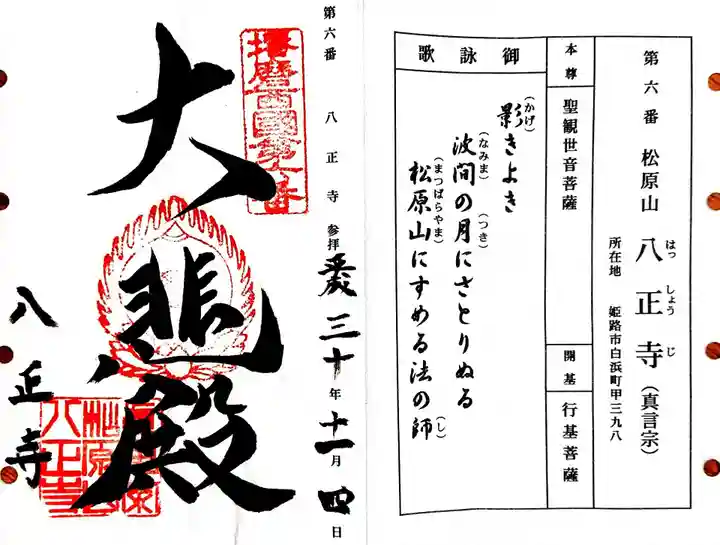 第六番 松原山 八正寺(真言宗)
はっしょうじ
所在地 姫路市白浜町甲三九八
本尊 聖観世音菩薩
開基 行基菩薩
御詠歌
影(かげ)きよき
波間(なみま)の月(つき)にさとりぬる
松原山(まつばらやま)にすめる法の師(し)
第六番 八正寺 参拝
平成三十年十一月四日
播磨西國第六番
大悲殿
八正寺